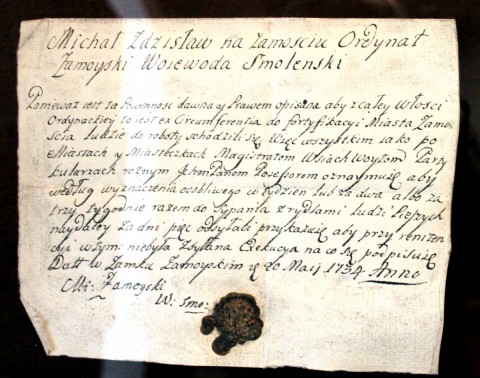 Michał Zdzisław na Zamościu Ordynat
Zamoyski Woiewoda Smolenski
Ponieważ iest ta Powinność dawna y Prawem opisana aby z całey włości
Ordynackiey to iest ex Circumferentia do fortyfikacyi Miasta Zamo
ścia ludzie do roboty schodzili się. Więc wszystkim iako po
Miastach y Miasteczkach Magistratom Wsiach Woytom Party
kularzach rożnym Ichm Panom Possessorom oznaymuię aby
według wyznaczenia osobliwego w tydzien lub za dwa albo za
trzy tygodnie razem do sypania z rydlami ludzi Pieszych
naydaley za dni pięć odsyłali przykazuię aby przy reniten
cyi w tym niebyła zsyłana Exekucya na co się podpisuię
Datt w Zamku Zamoyskim 20 Maij 1734 Anno
Mi: Zamoyski
W: Smo: